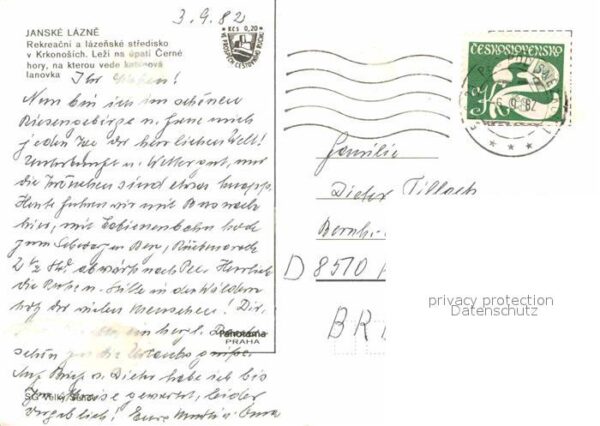 3.9.82
JANSKÉ LÁZNĚ
Rekreační a lázeňské středisko
v Krkonoších. Leží na úpatí Černé
hory, na kterou vede kabinová
lanovka
Kčs 0,20
Ihr Lieben!
Nun bin ich im schönen
Riesengebirge u. freue mich
jeden Tag der herrlichen Welt!
Unterbringg u. Wetter gut, nur
die Krönchen sind etwas knapp.
Heute fuhren wir mit Bus nach
hier, mit Cabienenbahn hoch
zum Schwarzen Berg, Rückmarsch
2 1/2 Std. abwärts nach Pec. Herrlich
die Ruhe u. Stille in den Wäldern
trotz der vielen Menschen!
ein herzl.
schön für die Urlaubsgrüße.
Auf Brief v. Dieter habe ich bis
zur Abreise gewartet, leider
vergeblich! Eure Mutti u. Oma
Panorama
PRAHA
ČESKOSLOVENSKO
Kčs
6.9.82
Familie
Dieter Tillach
D 8510
BR
privacy protection
Datenschutz